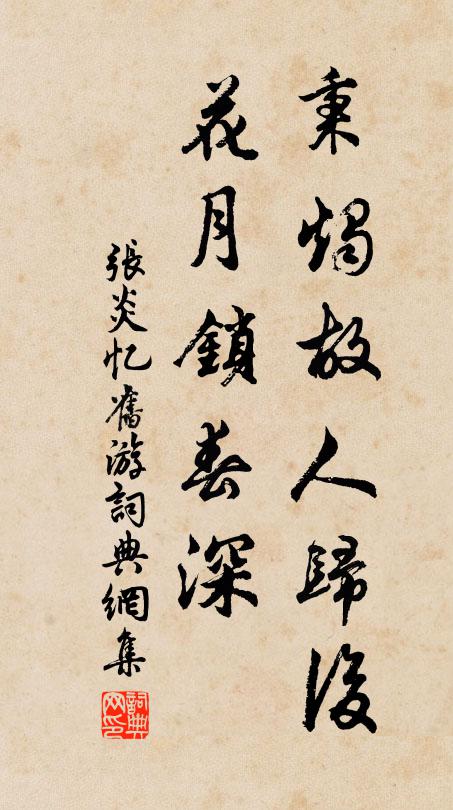 秉燭故人歸後
花月鎖春深
張炎忆舊游詞典網集
詞典网印